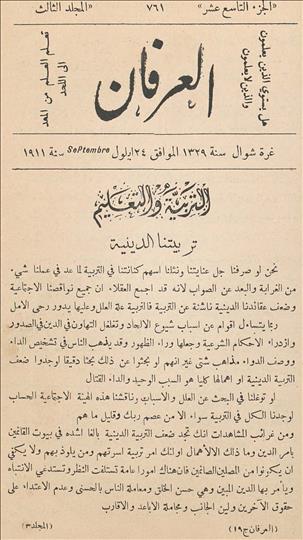 «الجزء التاسع عشر» ٧٦١ «المجلد الثالث»
هل يستوي الذين يعلمون
والذين لا يعلمون
العرفان
تعلم العلم من المهد
الى اللحد
غرة شوال سنة ١٣٢٩ الموافق ٢٤ ايلول Septembre سنة ١٩١١
التربية والتعليم
تربيتنا الدينية
نحن لو صرفنا جل عنايتنا ونثلنا اسهم كنانتنا في التربية لما عد في عملنا شيء
من الغرابة والبعد عن الصواب لانه قد اجمع العقلاء ان جميع نواقصنا الاجتماعية
وضعف عقائدنا الدينية ناشئة عن التربية فالتربية علة العلل وعليها يدور رحى الامل
ربما يتساءل اقوام عن اسباب شيوع الالحاد وتغلغل التهاون في الدين في الصدور
وازدراء الاحكام الشرعية وجعلها وراء الظهور وقد يذهب الناس في تشخيص الداء
ووصف الدواء مذاهب شتى غير انهم لو بحثوا عن ذلك بحثا دقيقا لوجدوا ضعف
التربية الدينية او اهمالها كليا هو السبب الوحيد والداء القتال
لو توغلنا في البحث عن العلل والاسباب وناقشنا هذه الهيئة الاجتماعية الحساب
لوجدنا الكل في التربية سواء الا من عصم ربك وقليل ما هم
ومن غرائب المشاهدات انك تجد ضعف التربية الدينية بالغا اشده في بيوت القائمين
بامر الدين وما ذلك الا لاهمال اولئك امر تربية اسرتهم ومن يلوذ بهم ولا يكفي
ان يكونوا من المصلين الصائمين فان هناك امورا عامة تستلفت النظر وتستدعي الانتباه
ويأمر بها الدين المبين وهي حسن الخلق ومعاملة الناس بالحسنى وعدم الاعتداء على
حقوق الآخرين ولين الجانب ومجاملة الاباعد والاقارب
(العرفان ج١٩) (المجلد٣)